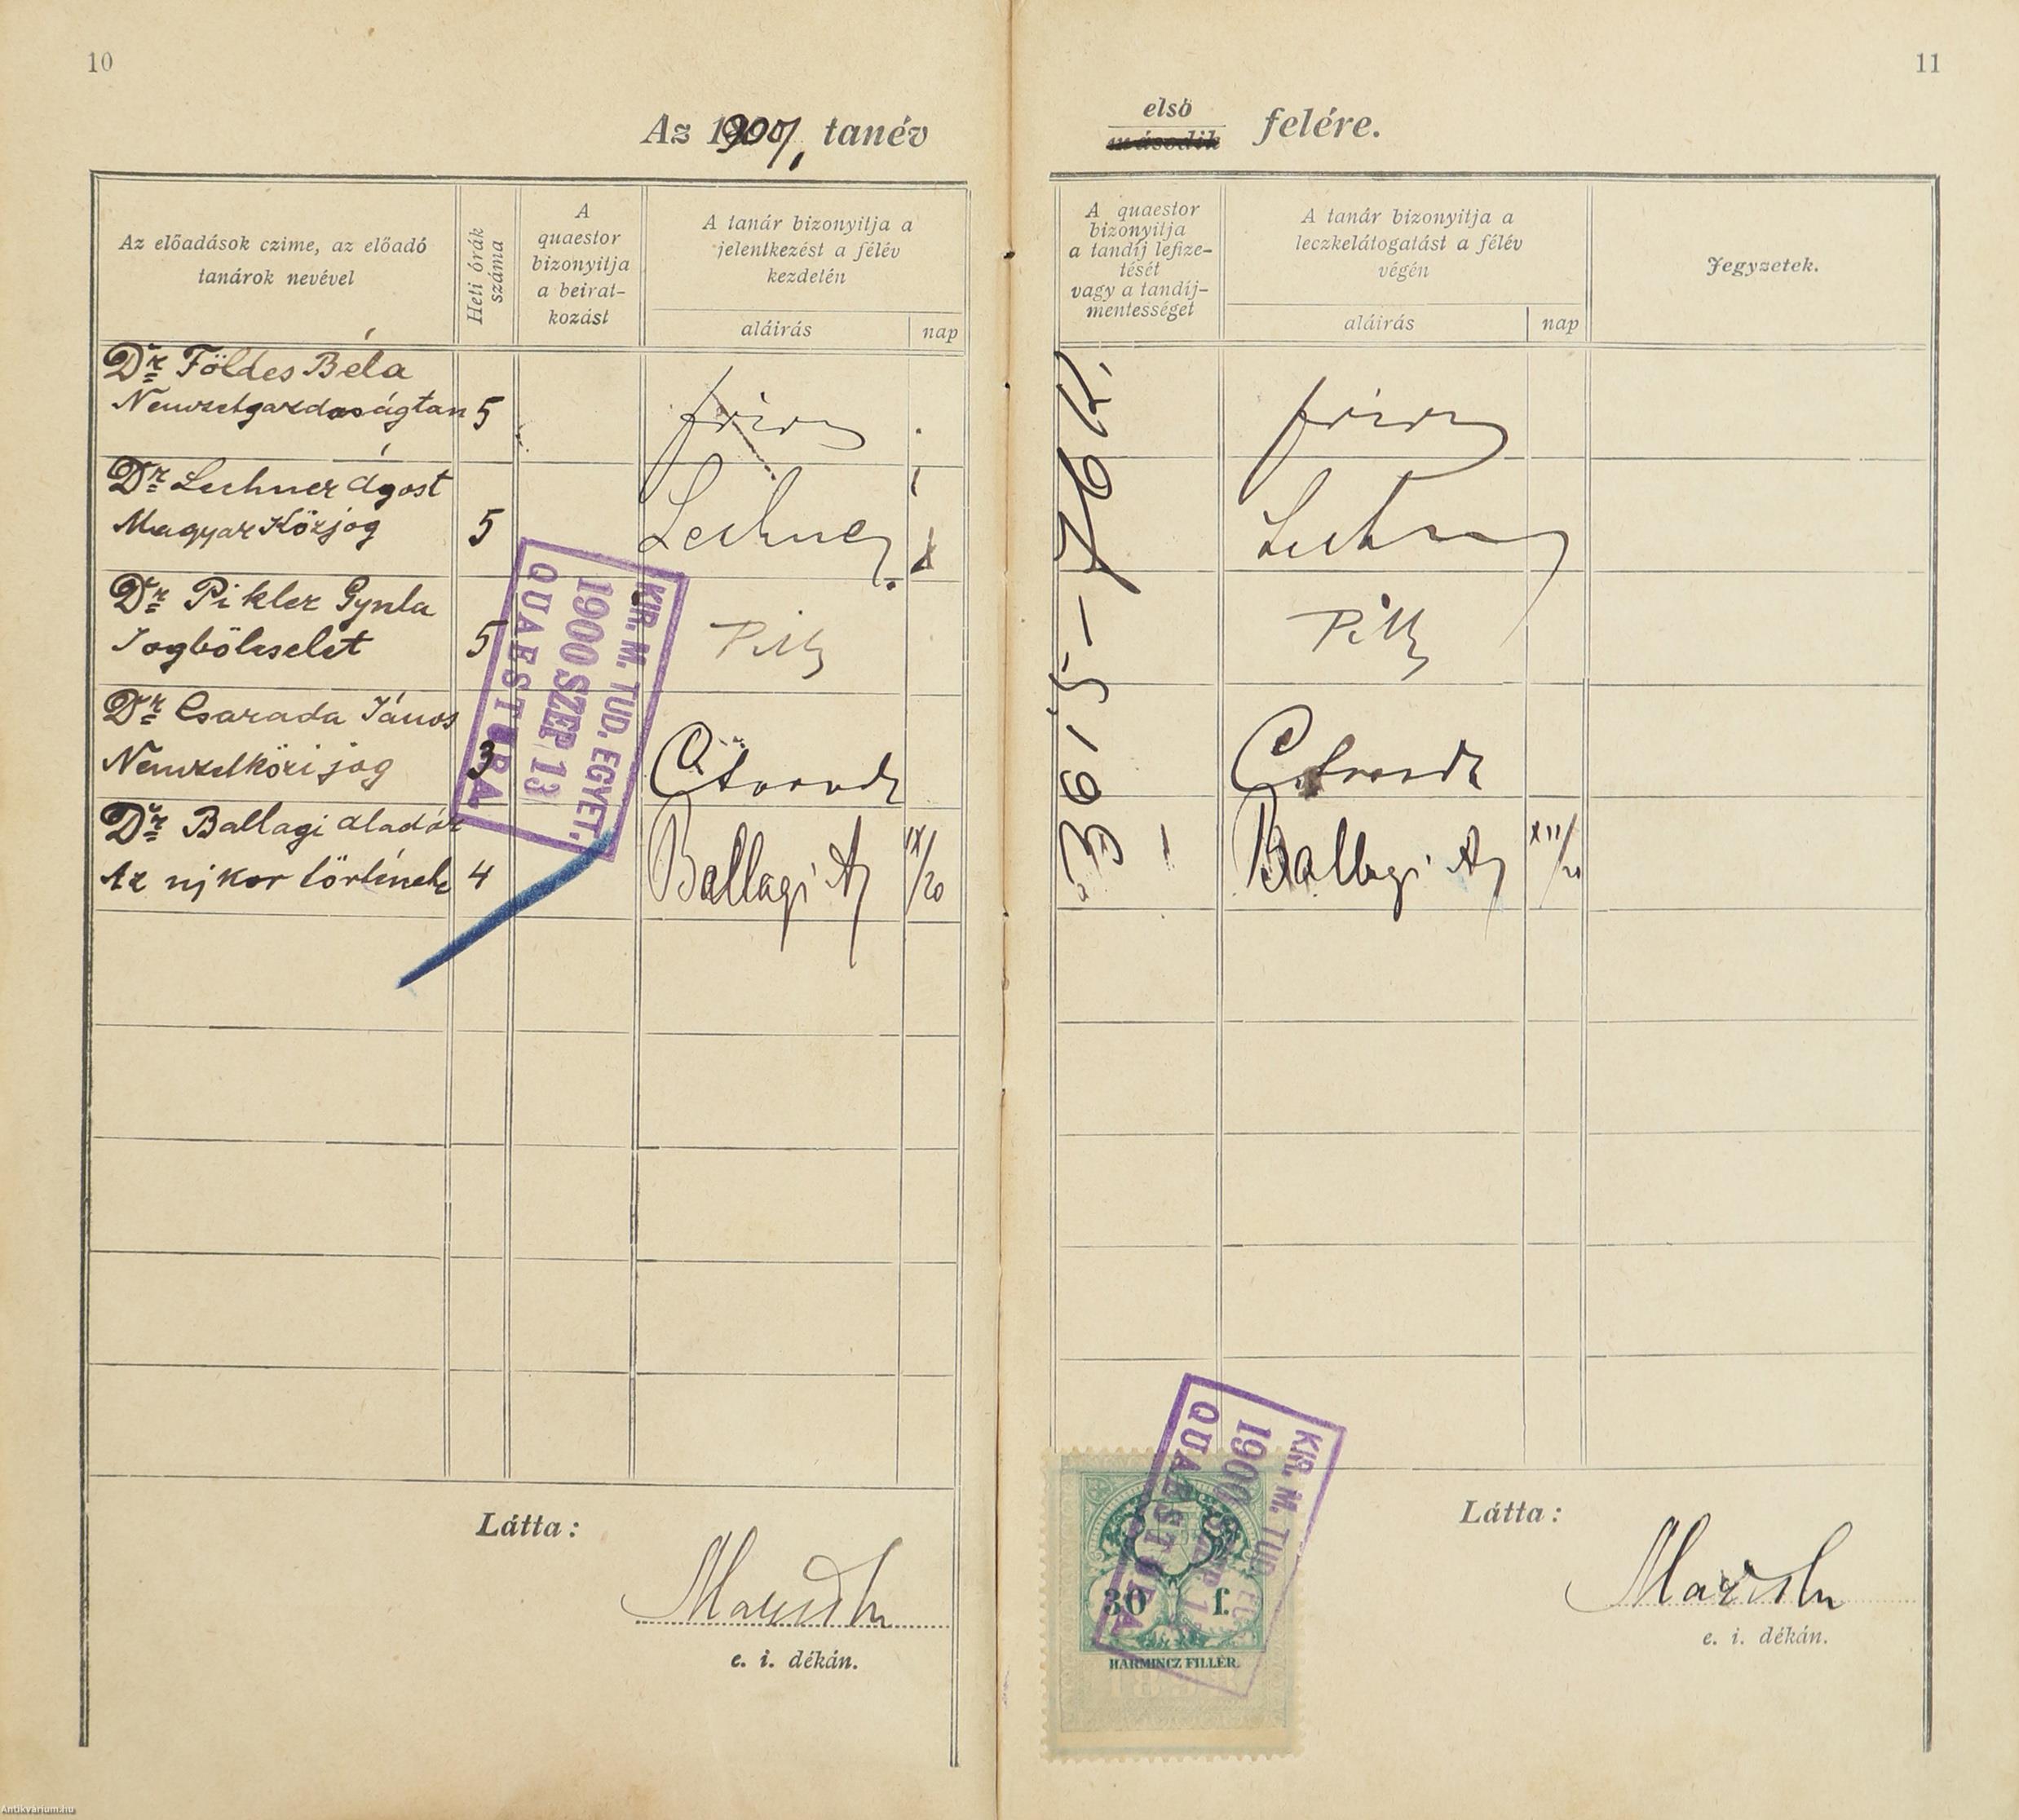 10
Az 1900/1, tanév
Az előadások czime, az előadó
tanárok nevével
Heti órák
száma
A
quaestor
bizonyitja
a beirat-
kozást
A tanár bizonyitja a
jelentkezést a félév
kezdetén
aláirás
nap
Dr Földes Béla
Nemzetgazdaságtan 5
Dr Lechner Ágost
Magyar Közjog 5
Lechner
Dr Pikler Gyula
Jogbölcselet 5
Dr Csarada János
Nemzetközi jog 3
Csarada
Dr Ballagi Aladár
Az ujkor története 4
Ballagi A
IX/20
KIR. M. TUD. EGYET.
1900 SZEP 13
QUAESTURA
Látta:
e. i. dékán.
11
első
második
felére.
A quaestor
bizonyitja
a tandíj lefize-
tését
vagy a tandíj-
mentességet
A tanár bizonyitja a
leczkelátogatást a félév
végén
aláirás
nap
Jegyzetek.
Csarada
Ballagi A
XII/20
KIR. M. TUD. EGYET.
1900 SZEP 13
QUAESTURA
30 f.
HARMINCZ FILLÉR.
Látta:
e. i. dékán.
Antikvarium.hu